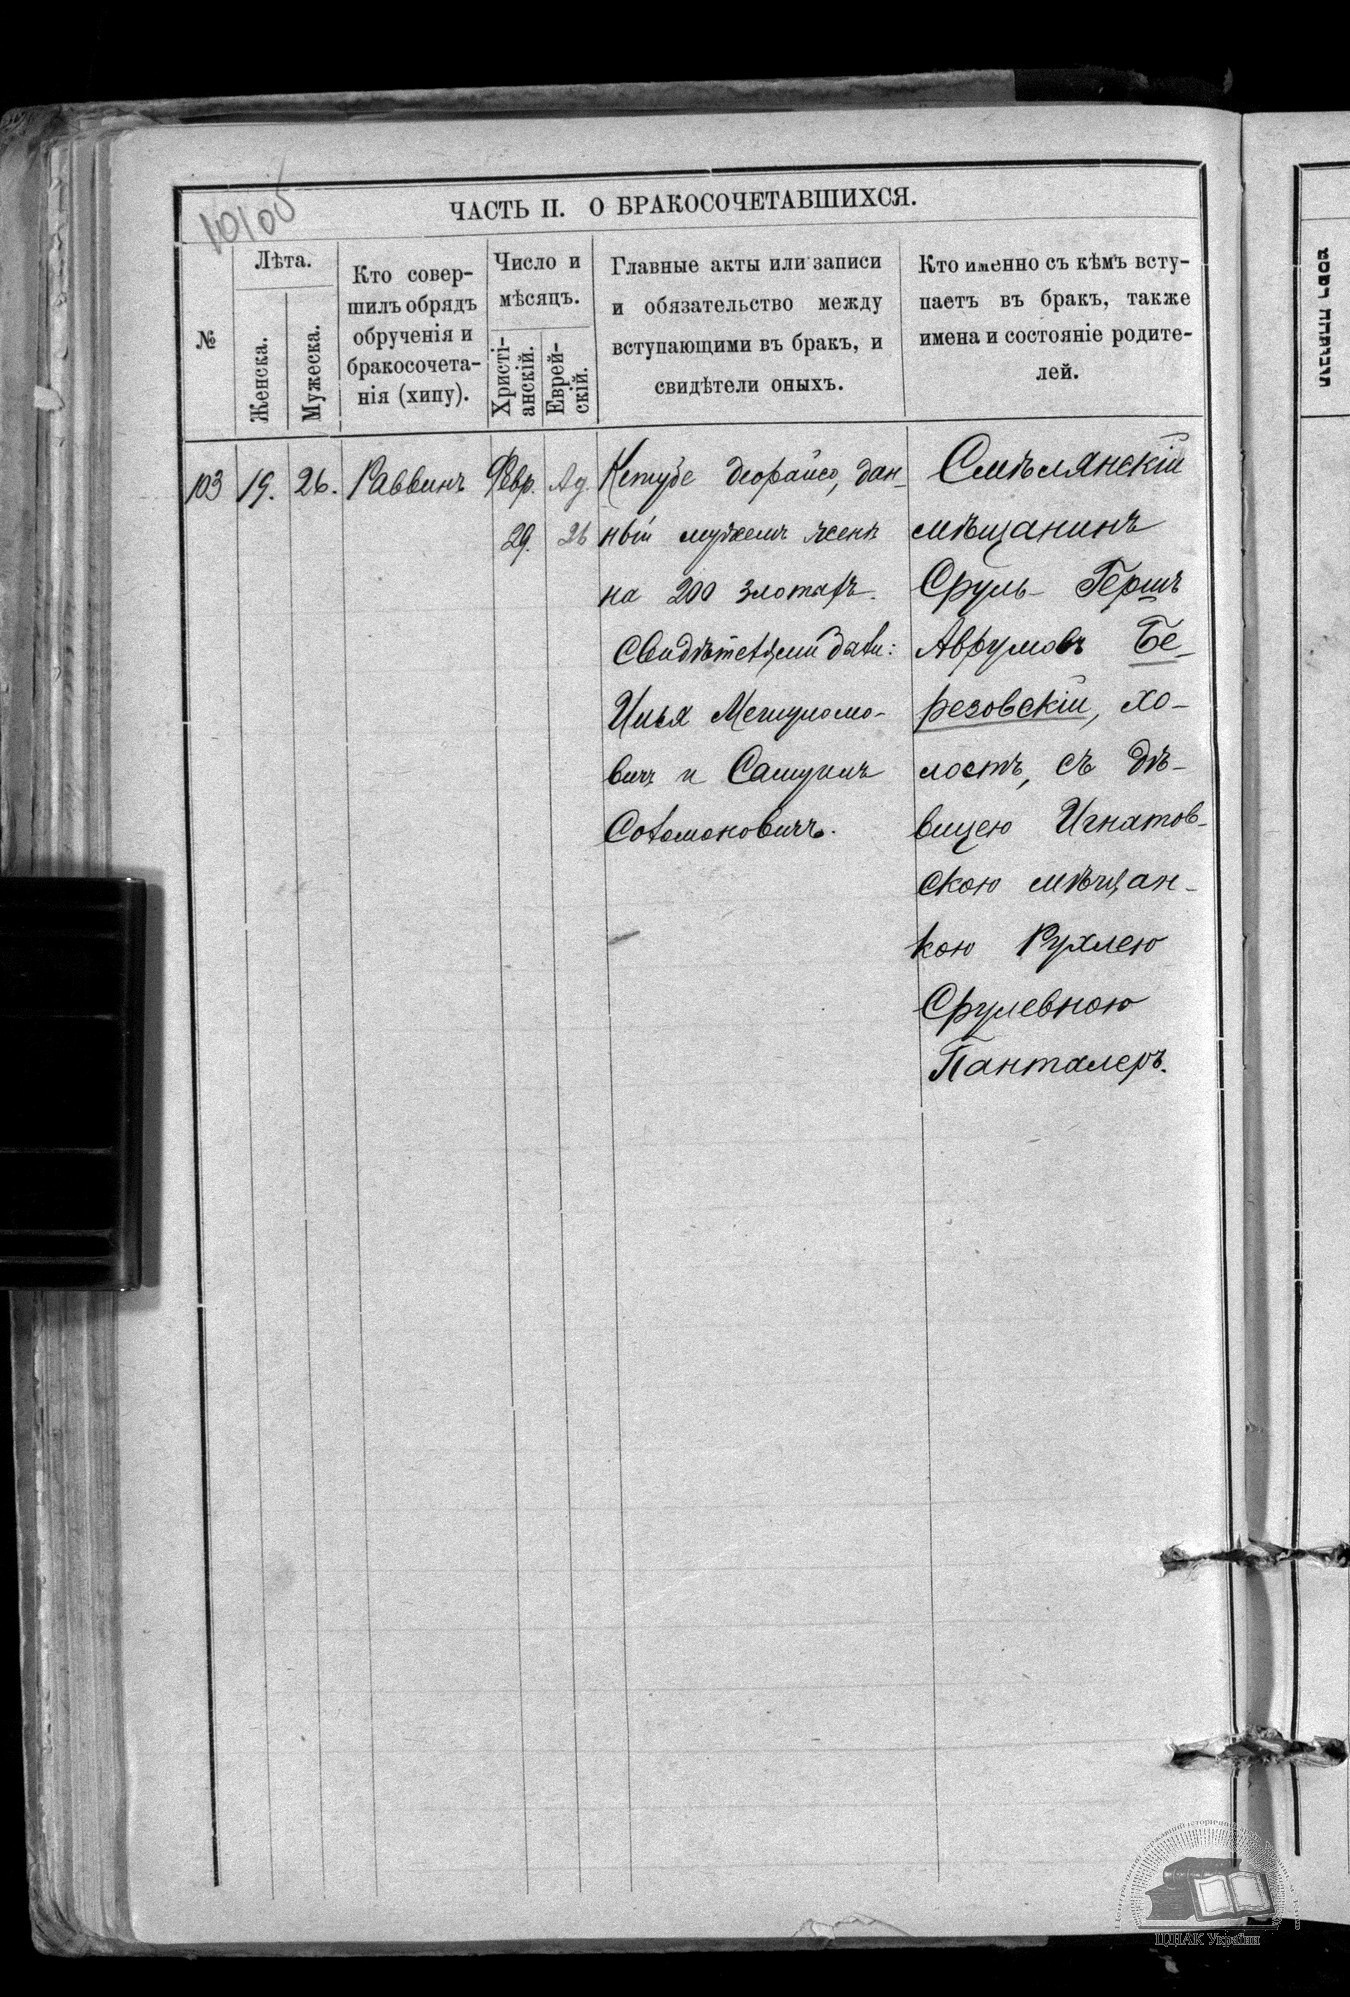 ЧАСТЬ II. О БРАКОСОЧЕТАВШИХСЯ.
№
Лѣта.
Женска.
Мужеска.
Кто совер-
шилъ обрядъ
обрученія и
бракосочета-
нія (хипу).
Число и
мѣсяцъ.
Христі-
анскій.
Еврей-
скій.
Главные акты или записи
и обязательство между
вступающими въ бракъ, и
свидѣтели оныхъ.
Кто именно съ кѣмъ всту-
паетъ въ бракъ, также
имена и состояніе родите-
лей.
103
19.
26.
Раввинъ
Февр.
29.
Ад.
26
Кетубе деорайсо, дан-
ный мужемъ женѣ
на 200 злотыхъ.
Свидѣтелями были:
Илья
и Самуилъ
Соломоновичъ.
Смѣлянскій
мѣщанинъ
Сруль-Гершъ
Аврумовъ Бе-
резовскій, хо-
лостъ, съ дѣ-
вицею Игнатов-
скою мѣщан-
кою Рухлею
Срулевною
Панталеръ.
ЦДІАК України